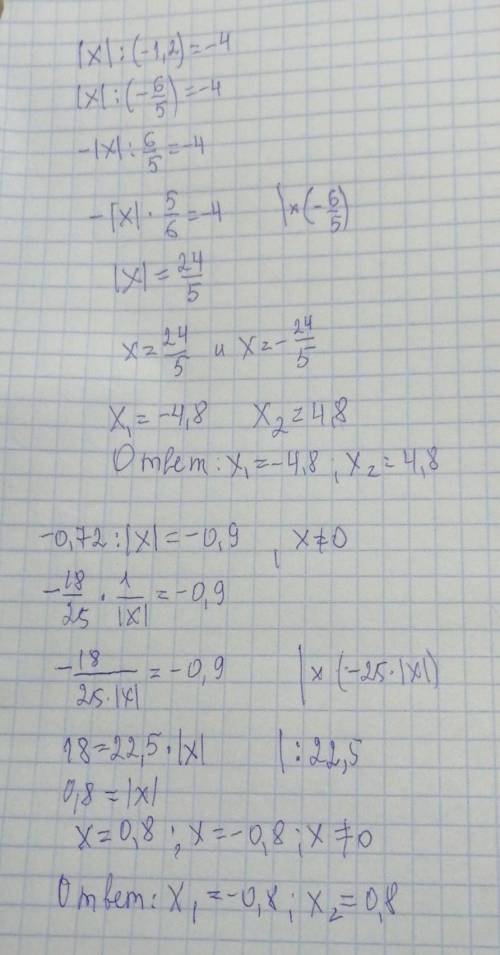 |x| : (-1,2) = -4
|x| : (-6/5) = -4
-|x| : 6/5 = -4
-|x| · 5/6 = -4 | × (-6/5)
|x| = 24/5
x = 24/5 и x = -24/5
x₁ = -4,8 x₂ = 4,8
Ответ: x₁ = -4,8 ; x₂ = 4,8
-0,72 : |x| = -0,9 , x ≠ 0
-18/25 · 1/|x| = -0,9
-18/(25·|x|) = -0,9 | × (-25·|x|)
18 = 22,5·|x| | : 22,5
0,8 = |x|
x = 0,8 ; x = -0,8 ; x ≠ 0
Ответ: x₁ = -0,8 ; x₂ = 0,8